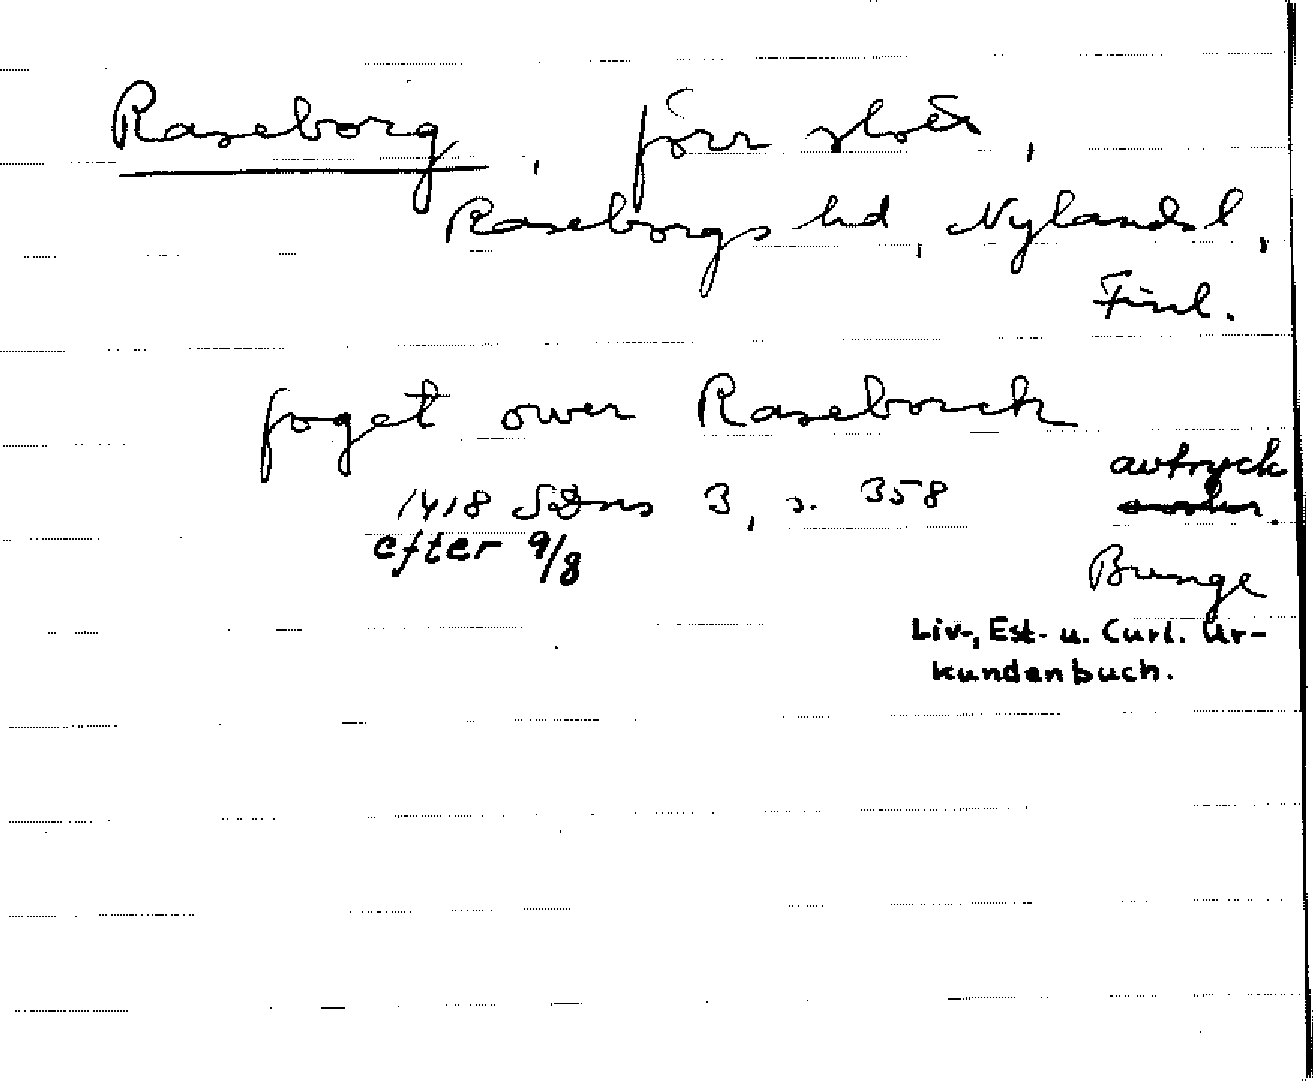 Raseborg, förr slott,
Raseborgs hd, Nylands l,
Finl.
foget ower Raseborch
1418 SDns 3, s. 358 avtryck
efter 9/8
Bunge
Liv-, Est- u. Curl. Ur-
kundenbuch.